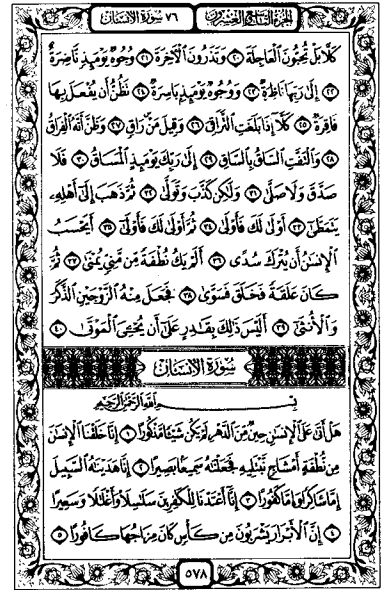 الجزء التاسع والعشرون ٧٦ سورة الإنسان
كَلَّا بَلْ تُحِبُّونَ الْعَاجِلَةَ ٢٠ وَتَذَرُونَ الْآخِرَةَ ٢١ وُجُوهٌ يَوْمَئِذٍ نَّاضِرَةٌ
٢٢ إِلَىٰ رَبِّهَا نَاظِرَةٌ ٢٣ وَوُجُوهٌ يَوْمَئِذٍ بَاسِرَةٌ ٢٤ تَظُنُّ أَن يُفْعَلَ بِهَا
فَاقِرَةٌ ٢٥ كَلَّا إِذَا بَلَغَتِ التَّرَاقِيَ ٢٦ وَقِيلَ مَنْ رَاقٍ ٢٧ وَظَنَّ أَنَّهُ الْفِرَاقُ
٢٨ وَالْتَفَّتِ السَّاقُ بِالسَّاقِ ٢٩ إِلَىٰ رَبِّكَ يَوْمَئِذٍ الْمَسَاقُ ٣٠ فَلَا
صَدَّقَ وَلَا صَلَّىٰ ٣١ وَلَٰكِن كَذَّبَ وَتَوَلَّىٰ ٣٢ ثُمَّ ذَهَبَ إِلَىٰ أَهْلِهِ
يَتَمَطَّىٰ ٣٣ أَوْلَىٰ لَكَ فَأَوْلَىٰ ٣٤ ثُمَّ أَوْلَىٰ لَكَ فَأَوْلَىٰ ٣٥ أَيَحْسَبُ
الْإِنسَٰنُ أَن يُتْرَكَ سُدًى ٣٦ أَلَمْ يَكُ نُطْفَةً مِّن مَّنِيٍّ يُمْنَىٰ ٣٧ ثُمَّ
كَانَ عَلَقَةً فَخَلَقَ فَسَوَّىٰ ٣٨ فَجَعَلَ مِنْهُ الزَّوْجَيْنِ الذَّكَرَ
وَالْأُنثَىٰ ٣٩ أَلَيْسَ ذَٰلِكَ بِقَادِرٍ عَلَىٰ أَن يُحْيِيَ الْمَوْتَىٰ ٤٠
سُورَةُ الْإِنسَانِ
بِسْمِ اللَّهِ الرَّحْمَٰنِ الرَّحِيمِ
هَلْ أَتَىٰ عَلَى الْإِنسَٰنِ حِينٌ مِّنَ الدَّهْرِ لَمْ يَكُن شَيْئًا مَّذْكُورًا ١ إِنَّا خَلَقْنَا الْإِنسَٰنَ
مِن نُّطْفَةٍ أَمْشَاجٍ نَّبْتَلِيهِ فَجَعَلْنَٰهُ سَمِيعًا بَصِيرًا ٢ إِنَّا هَدَيْنَٰهُ السَّبِيلَ
إِمَّا شَاكِرًا وَإِمَّا كَفُورًا ٣ إِنَّا أَعْتَدْنَا لِلْكَٰفِرِينَ سَلَٰسِلَا وَأَغْلَٰلًا وَسَعِيرًا
٤ إِنَّ الْأَبْرَارَ يَشْرَبُونَ مِن كَأْسٍ كَانَ مِزَاجُهَا كَافُورًا ٥
٥٧٨